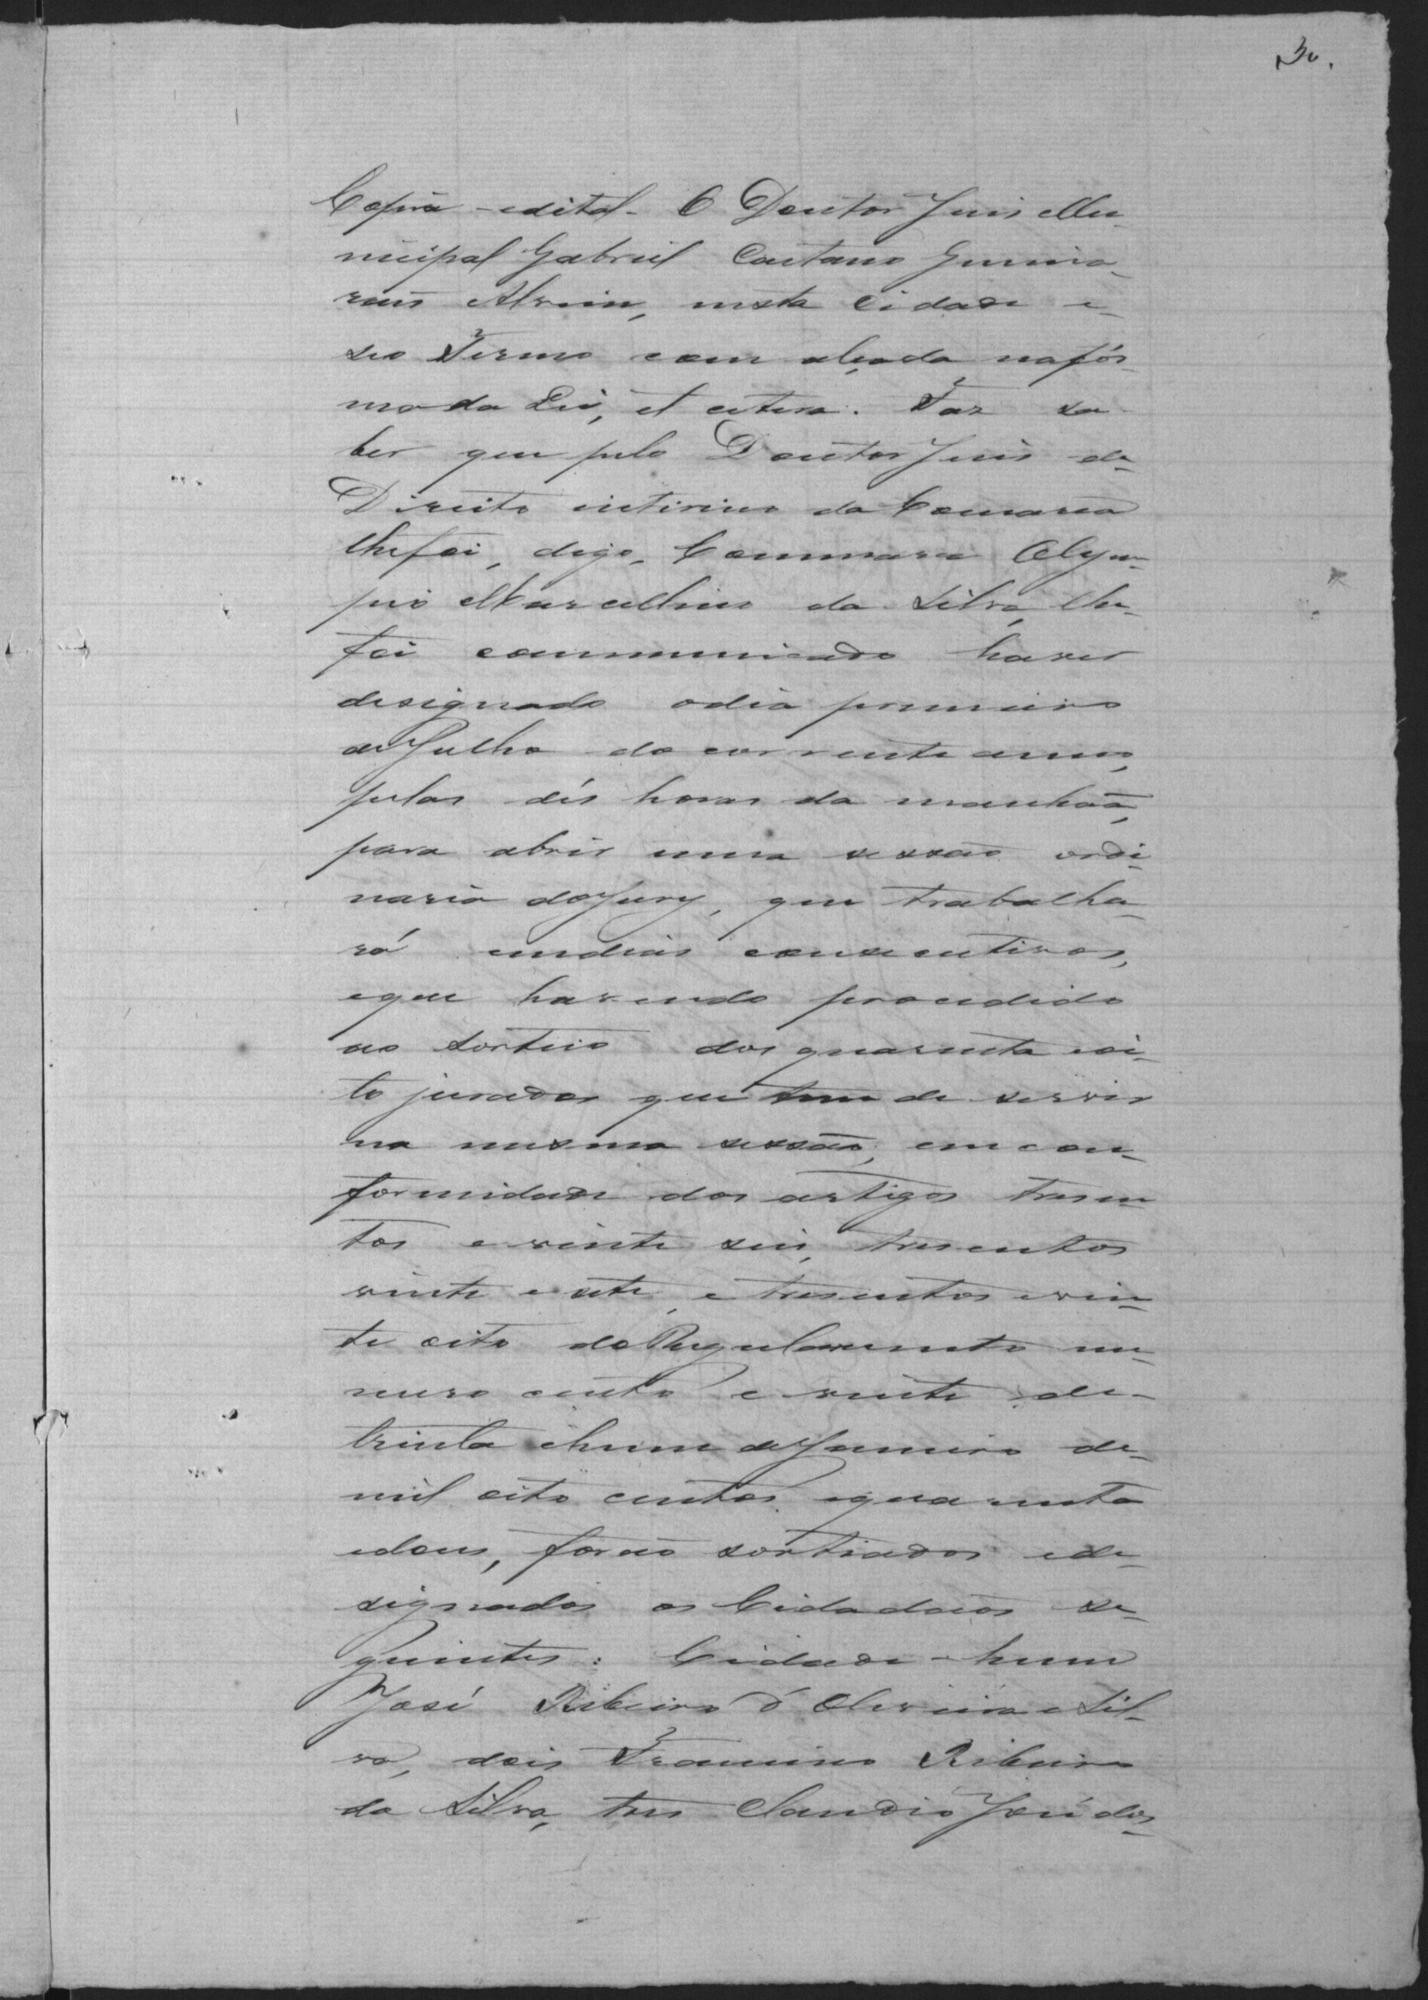 30.
Copia - edital - O Doutor Juis Mu-
nicipal Gabriel Caetano Guima-
raes Alvim, nesta Cidade e
seo Termo com alçada na fór-
ma da Lei, et cetera. Faz sa-
ber que pelo Doutor Juis de
Direito interino da Comarca
lhe foi, digo, Commarca Olym-
pio Marcellino da Silva, lhe
foi communicado haver
designado o dia primeiro
de Julho do corrente anno,
pelas dés horas da manhãa,
para abrir uma sessão ordi-
naria do Jury, que trabalha-
rá em dias consecutivos,
e que havendo procedido
ao sorteio dos quarenta e oi-
to jurados que tem de servir
na mesma sessão, em con-
formidade dos artigos tresen-
tos e vinte seis, tresentos
vinte e sete, e tresentos e vin-
te oito do Regulamento nu-
mero cento e vinte de
trinta e hum de Janeiro de
mil oito centos e quarenta
e dous, forão sortiados e de-
signados os Cidadãos se-
guintes: Cidade - hum
José Ribeiro d'Oliveira e Sil-
va, dois Francisco Ribeiro
da Silva, tres Claudio José dos